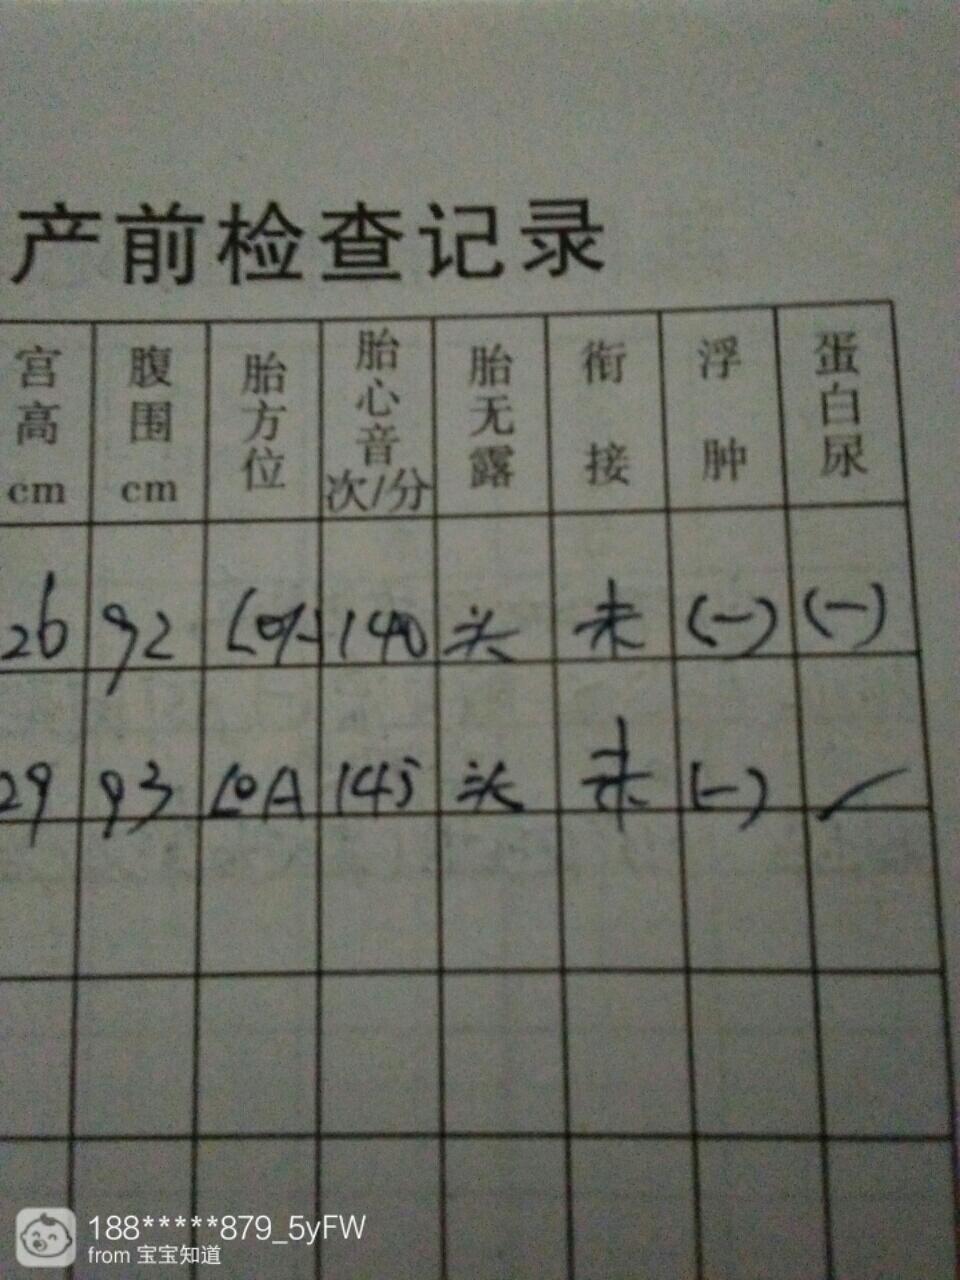 产前检查记录
宫高cm 腹围cm 胎方位 胎心音次/分 胎无露 衔接 浮肿 蛋白尿
26 92 LOA 140 头 未 (-) (-)
29 93 LOA 145 头 未 (-)
188*****879_5yFW
from 宝宝知道